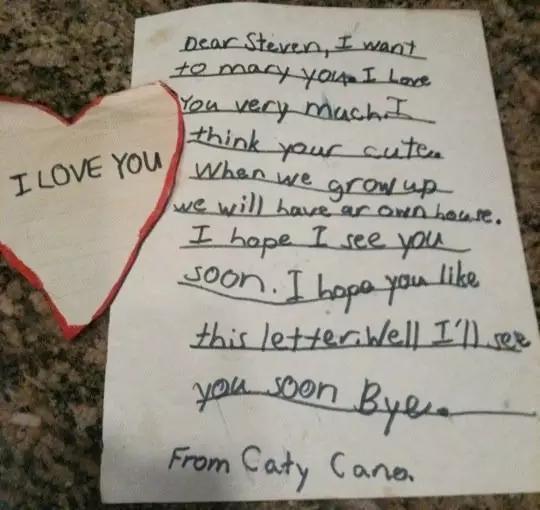 I LOVE YOU
Dear Steven, I want
to mary you. I Love
you very much. I
think your cute.
When we grow up
we will have ar own house.
I hope I see you
soon. I hope you like
this letter. Well I'll see
you soon Bye.
From Caty Cano.